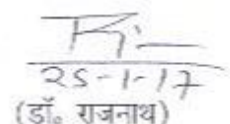 25-1-17
(डॉ॰ राजनाथ)